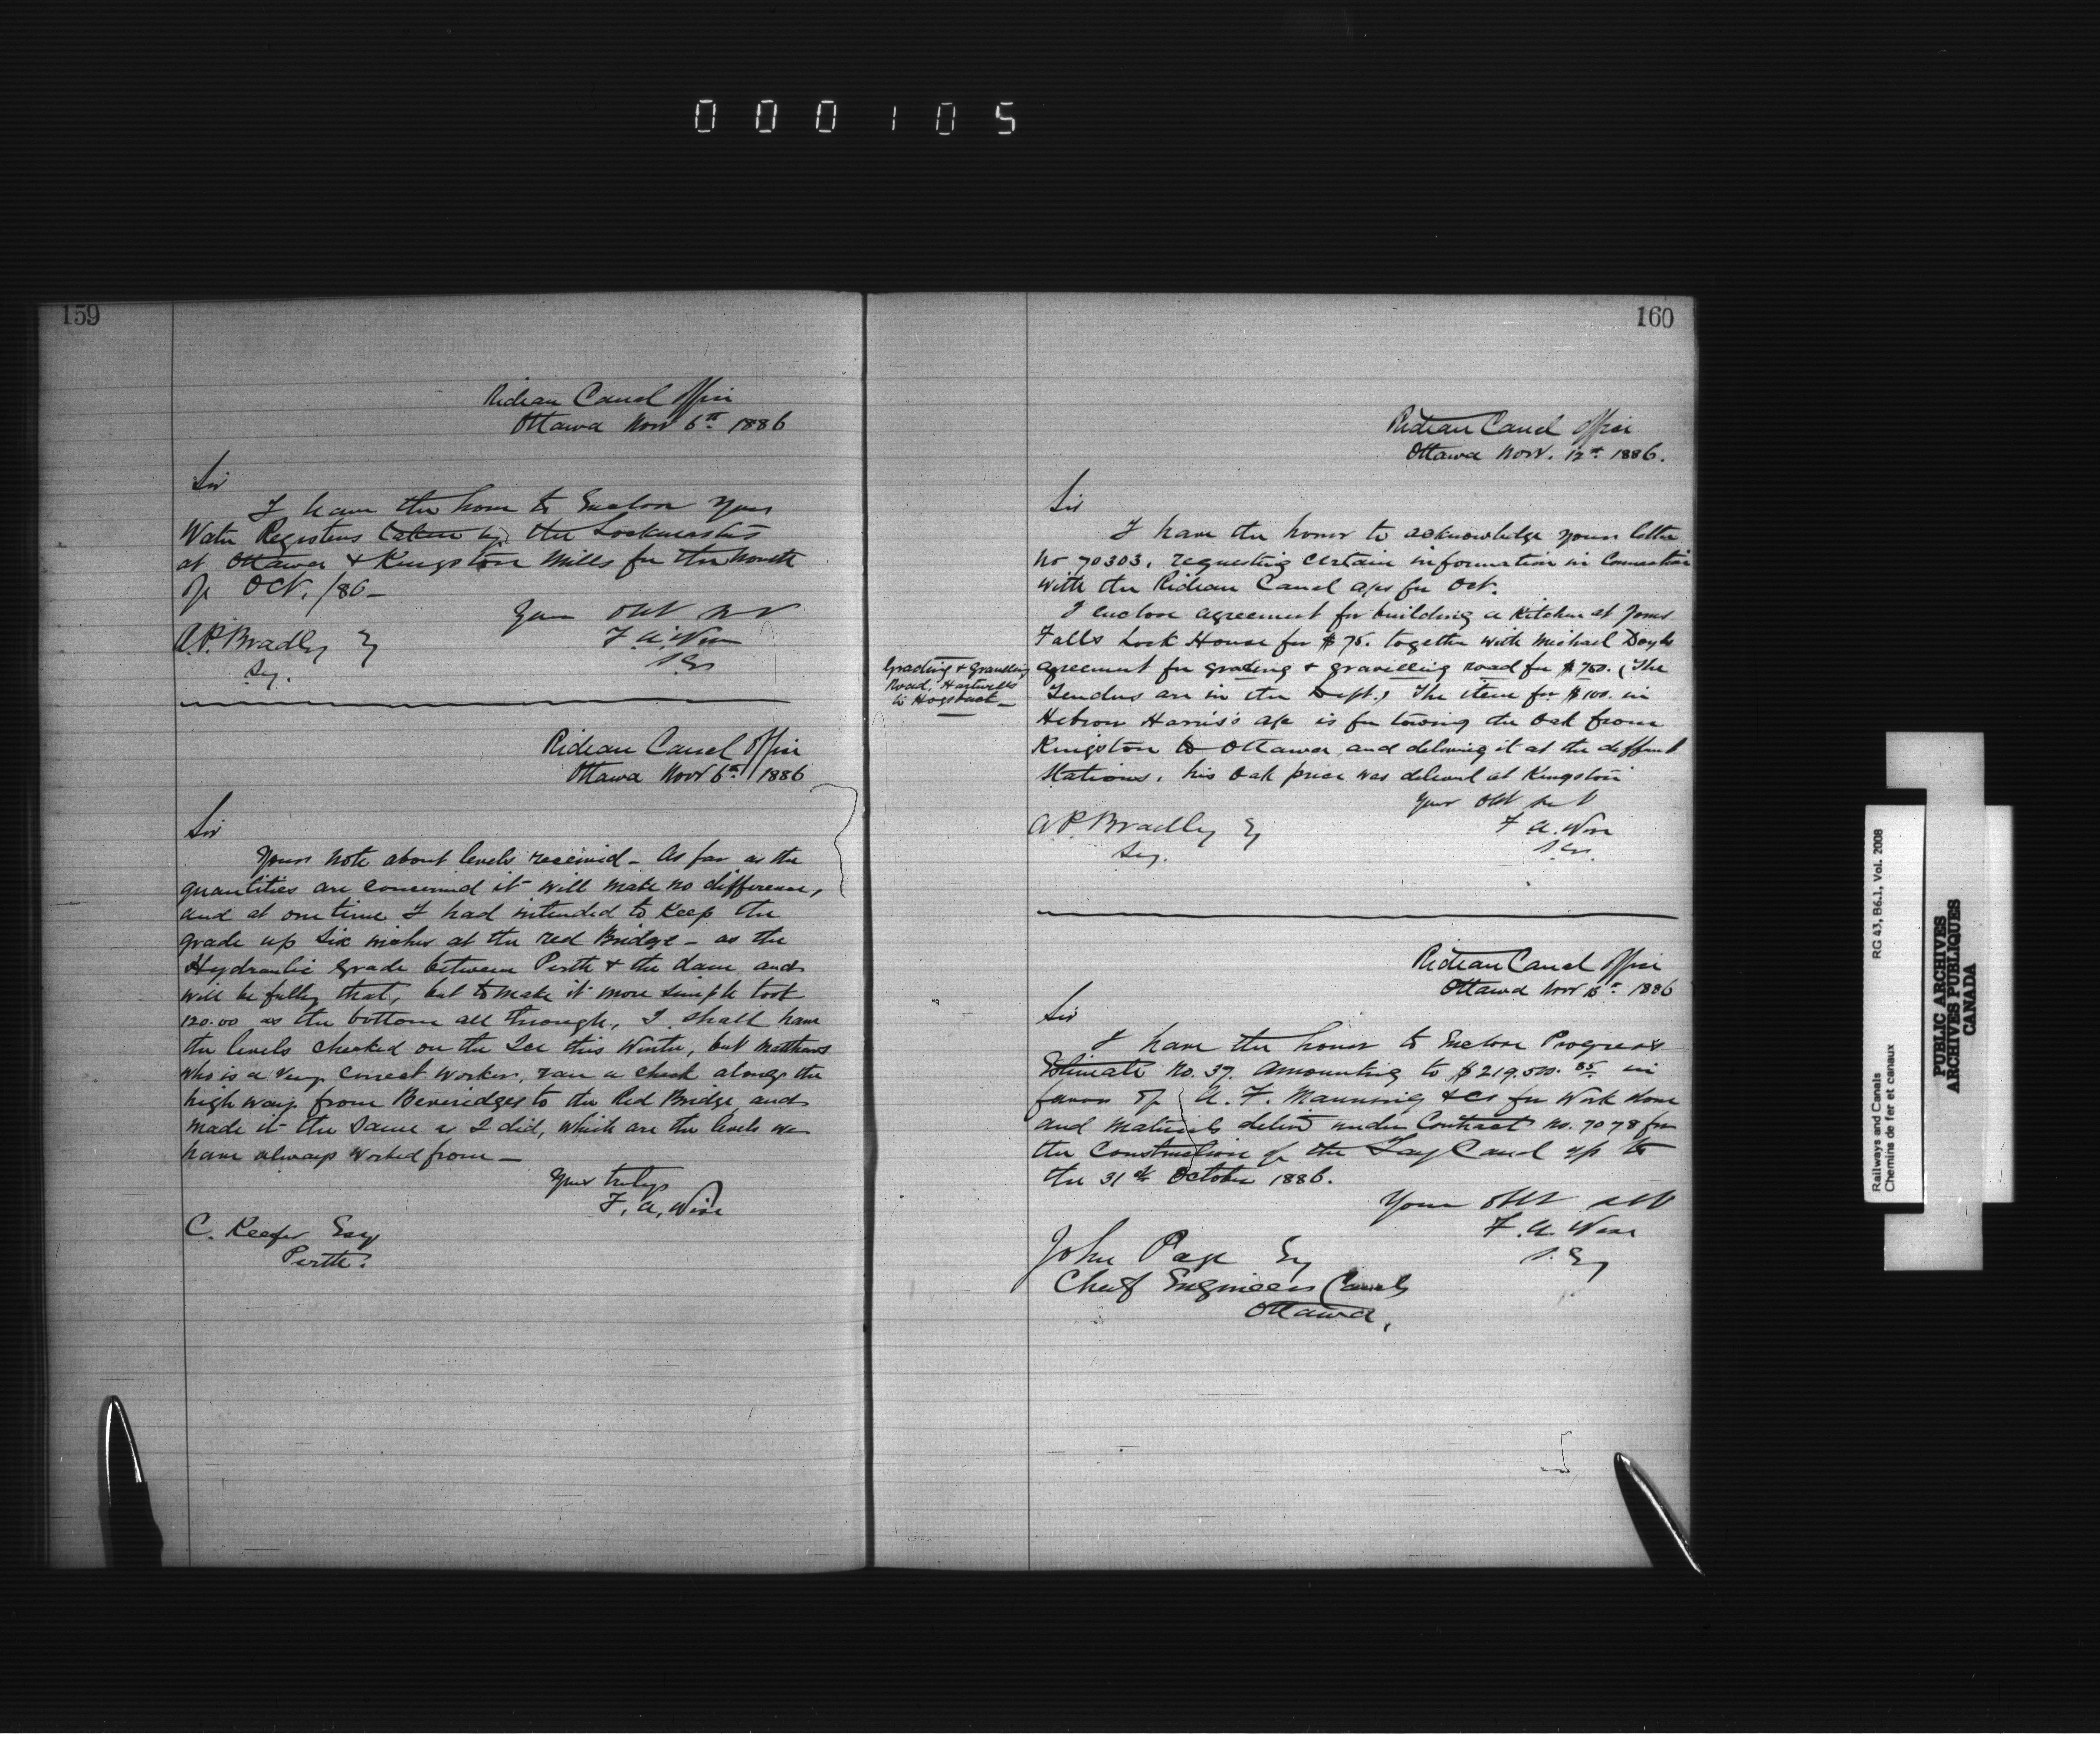 000105
159
Rideau Canal Office
Ottawa Nov 6th 1886
Sir
I have the honor to Enclose your
Water Registers taken by the Lockmasters
at Ottawa & Kingston Mills for the month
of Oct. /86 -
Your Obt svt
F. A. Wise
S. E.
A. P. Bradley Esq
Sey.
Rideau Canal Office
Ottawa Nov 6th 1886
Sir
Your note about levels received - As far as the
quantities are concerned it will make no difference,
and at one time I had intended to keep the
grade up six inches at the red Bridge - as the
Hydraulic grade between Perth & the dam and
will be fully that, but to make it more simple took
120.00 as the bottom all through, I shall have
the levels checked on the Ice this Winter, but Matthews
who is a very correct worker, ran a check along the
high way from Beveridges to the Red Bridge and
made it the same as I did, which are the levels we
have always worked from -
Yours truly
F. A. Wise
C. Keefer Esq
Perth.
160
Rideau Canal Office
Ottawa Nov. 12th 1886.
Sir
I have the honor to acknowledge your letter
No 70303, requesting certain information in Connection
with the Rideau Canal a/cs for Oct.
I enclose agreement for building a Kitchen at Jones
Falls Lock House for $75. together with Michael Doyle
agreement for grading & gravelling road for $750. (The
Tenders are in the Dept.) The item for $100. in
Hebron Harris's a/c is for towing the Oak from
Kingston to Ottawa and delivering it at the different
Stations, his Oak price was delivered at Kingston
Your Obt svt
F. A. Wise
S. E.
A. P. Bradley Esq
Sey.
Grading & Gravelling
Road, Hartwells
to Hogsback -
Rideau Canal Office
Ottawa Nov 1886
Sir
I have the honor to Enclose Progress
Estimate No. 37. Amounting to $219.510. 85 in
favor of A. F. Manning & Co for Work done
and Materials delivd under Contract No. 7078 for
the Construction of the Tay Canal up to
the 31st October 1886.
Your Obt svt
F. A. Wise
S. E.
John Page Esq
Chief Engineer Canals
Ottawa.
Railways and Canals RG 43, B6.1, Vol. 2008
Chemins de fer et canaux
PUBLIC ARCHIVES
ARCHIVES PUBLIQUES
CANADA